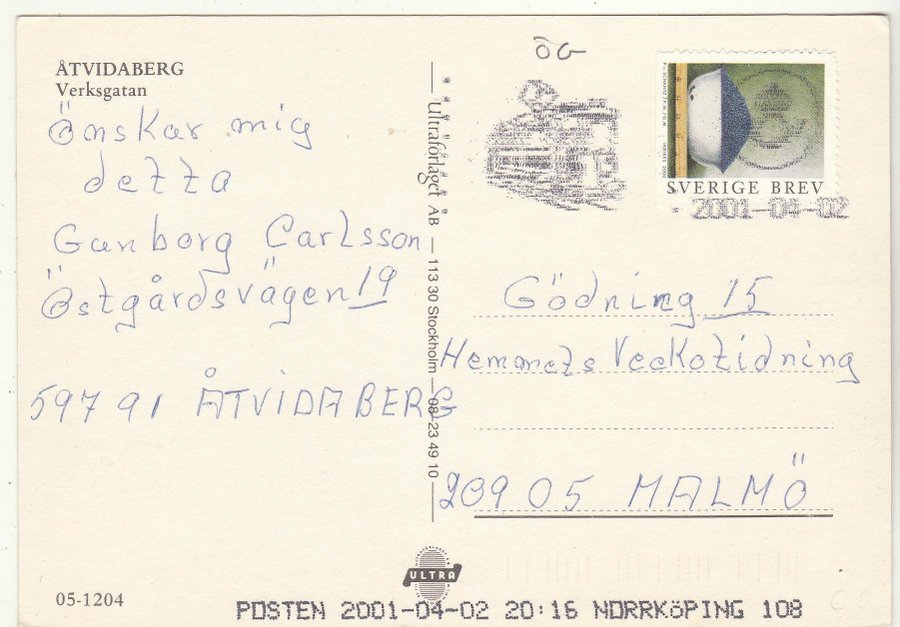 ÅTVIDABERG
Verksgatan
Önskar mig
detta
Gunborg Carlsson
Östgårdsvägen 19
597 91 ÅTVIDABERG
Ultraförlaget AB — 113 30 Stockholm — 08-23 49 10
ÖG
SVERIGE BREV
2001-04-02
Gödning 15
Hemmets Veckotidning
209 05 MALMÖ
ULTRA
05-1204
POSTEN 2001-04-02 20:16 NORRKÖPING 108